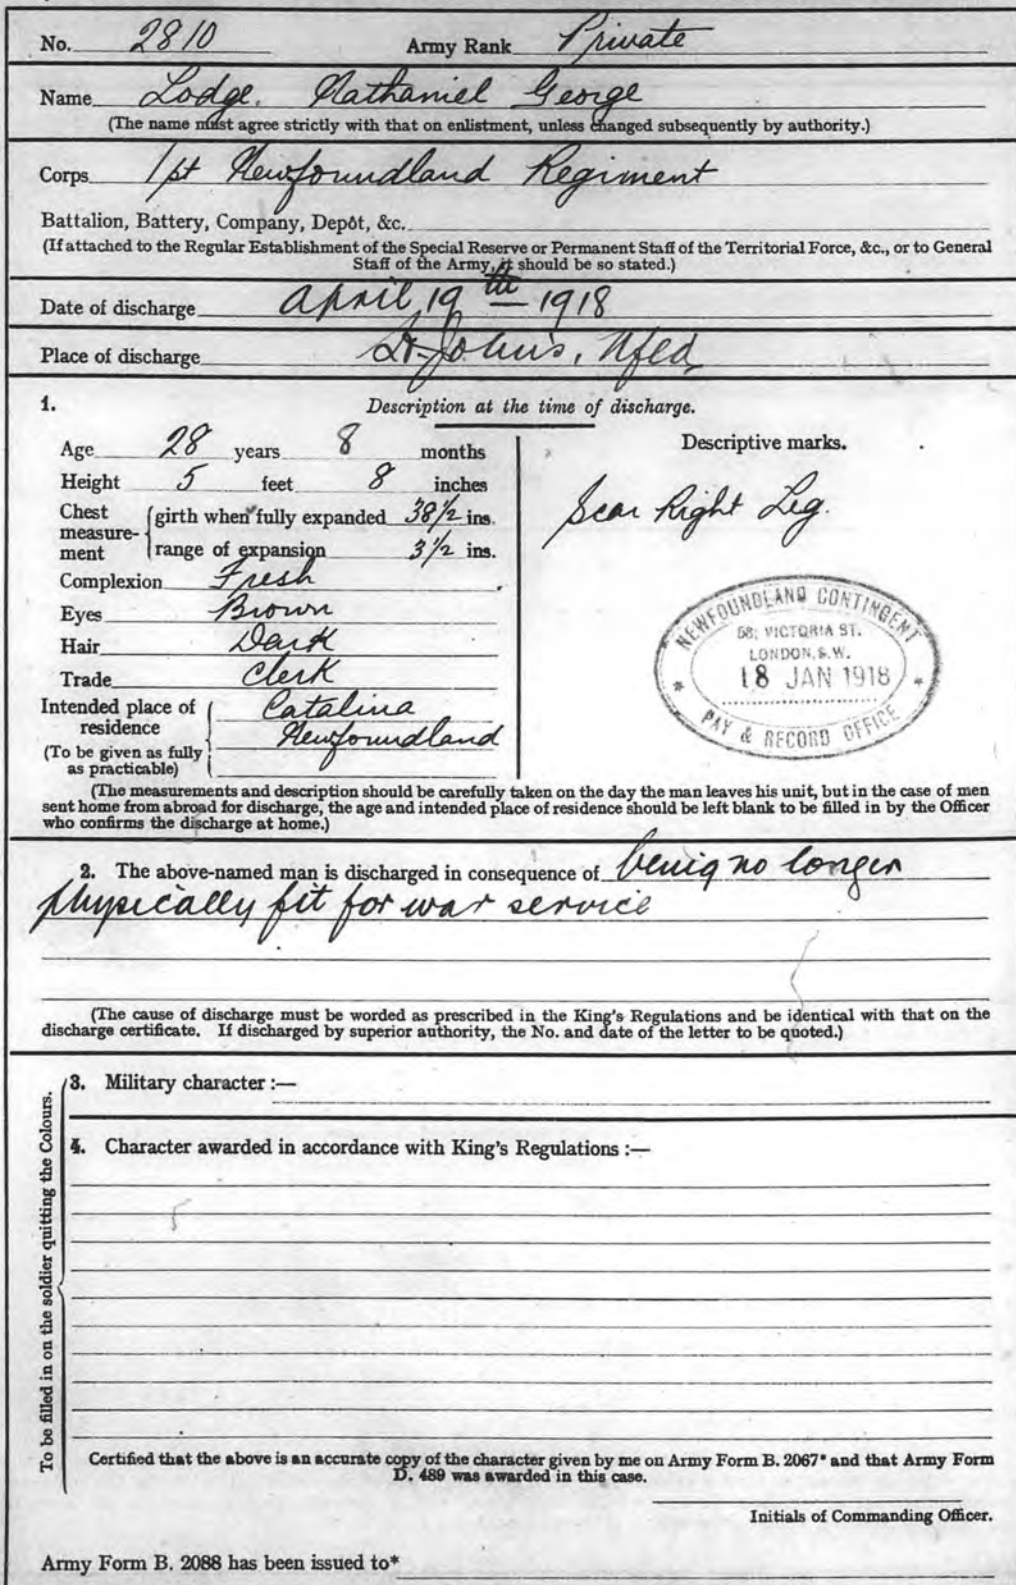 No. 2810 Army Rank Private
Name Lodge, Nathaniel George
(The name must agree strictly with that on enlistment, unless changed subsequently by authority.)
Corps 1st Newfoundland Regiment
Battalion, Battery, Company, Depôt, &c.
(If attached to the Regular Establishment of the Special Reserve or Permanent Staff of the Territorial Force, &c., or to General
Staff of the Army, it should be so stated.)
Date of discharge April 19th 1918
Place of discharge St. John's, Nfld
1. Description at the time of discharge.
Age 28 years 8 months
Height 5 feet 8 inches
Chest measure-ment girth when fully expanded 38 1/2 ins.
range of expansion 3 1/2 ins.
Complexion Fresh
Eyes Brown
Hair Dark
Trade Clerk
Intended place of residence Catalina
Newfoundland
(To be given as fully
as practicable)
Descriptive marks.
Scar Right Leg.
NEWFOUNDLAND CONTINGENT
58, VICTORIA ST.
LONDON, S.W.
18 JAN 1918
* PAY & RECORD OFFICE *
(The measurements and description should be carefully taken on the day the man leaves his unit, but in the case of men
sent home from abroad for discharge, the age and intended place of residence should be left blank to be filled in by the Officer
who confirms the discharge at home.)
2. The above-named man is discharged in consequence of benig no longer
physically fit for war service
(The cause of discharge must be worded as prescribed in the King's Regulations and be identical with that on the
discharge certificate. If discharged by superior authority, the No. and date of the letter to be quoted.)
To be filled in on the soldier quitting the Colours.
3. Military character :—
4. Character awarded in accordance with King's Regulations :—
Certified that the above is an accurate copy of the character given by me on Army Form B. 2067* and that Army Form
D. 489 was awarded in this case.
Initials of Commanding Officer.
Army Form B. 2088 has been issued to*